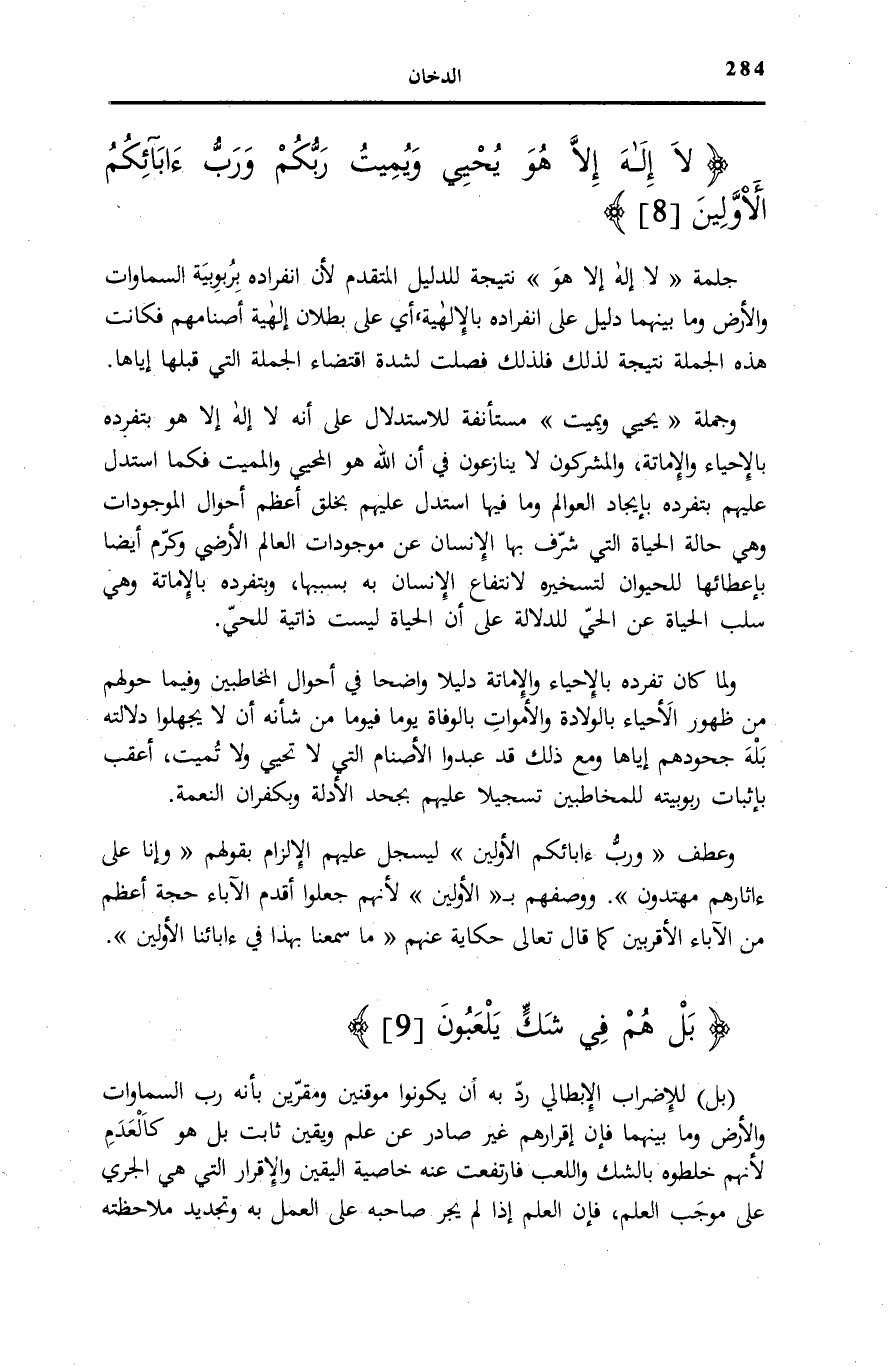 284
الدخان
﴿ لاَ إِلَـٰهَ إِلاَّ هُوَ يُحْيِي وَيُمِيتُ رَبُّكُمْ وَرَبُّ ءَابَآئِكُمُ
الَْأَوَّلِينَ [8] ﴾
جلمة « لا إلهٰ إلا هوَ » نتيجة للدليل المتقدم لأن انفراده بِرُبوبِيَة السماوات
والأرض وما بينهما دليل على انفراده بالإِلهٰية، أي على بطلان إلهٰية أصنامهم فكانت
هذه الجملة نتيجة لذلك فلذلك فصلت لشدة اقتضاء الجملة التي قبلها إياها.
وجملة « يحيي ويميت » مستأنفة للاستدلال على أنه لا إلهٰ إلا هو بتفرده
بالإِحياء والإِماتة، والمشركون لا ينازعون في أن الله هو المحيي والمميت فكما استدل
عليهم بتفرده بإيجاد العوالم وما فيها استدل عليهم بخلق أعظم أحوال الموجودات
وهي حالة الحياة التي شرّف بها الإِنسان عن موجودات العالم الأرضي وكرّم أيضا
بإعطائها للحيوان لتسخيره لانتفاع الإِنسان به بسببها، وبتفرده بالإِماتة وهي
سلب الحياة عن الحيّ للدلالة على أن الحياة ليست ذاتية للحيّ.
ولما كان تفرده بالإِحياء والإِماتة دليلا واضحا في أحوال المخاطبين وفيما حولهم
من ظهور الَأحياء بالولادة والأمواتِ بالوفاة يوما فيوما من شأنه أن لا يجهلوا دلالته
بَلْهَ جحودهم إياها ومع ذلك قد عبدوا الأصنام التي لا تحيي ولا تُميت، أعقب
بإثبات ربوبيته للمخاطبين تسجيلا عليهم بجحد الأدلة وبكفران النعمة.
وعطف « وربُّ ءابائكم الأولين » ليسجل عليهم الإِلزام بقولهم « وإنا على
ءاثارهم مهتدون ». ووصفهم بـ« الأولين » لأنهم جعلوا أقدم الآباء حجة أعظم
من الآباء الأقربين كما قال تعالى حكاية عنهم « ما سمعنا بهذا في ءابائنا الأولين ».
﴿ بَلْ هُمْ فِي شَكٍّ يَلْعَبُونَ [9] ﴾
(بل) للإِضراب الإِبطالي ردّ به أن يكونوا موقنين ومقرّين بأنه رب السماوات
والأرض وما بينهما فإن إقرارهم غير صادر عن علم ويقين ثابت بل هو كاَلْعَدَمِ
لأنهم خلطوه بالشك واللعب فارتفعت عنه خاصية اليقين والإِقرار التي هي الجري
على موجَب العلم، فإن العلم إذا لم يجر صاحبه على العمل به وتجديد ملاحظته